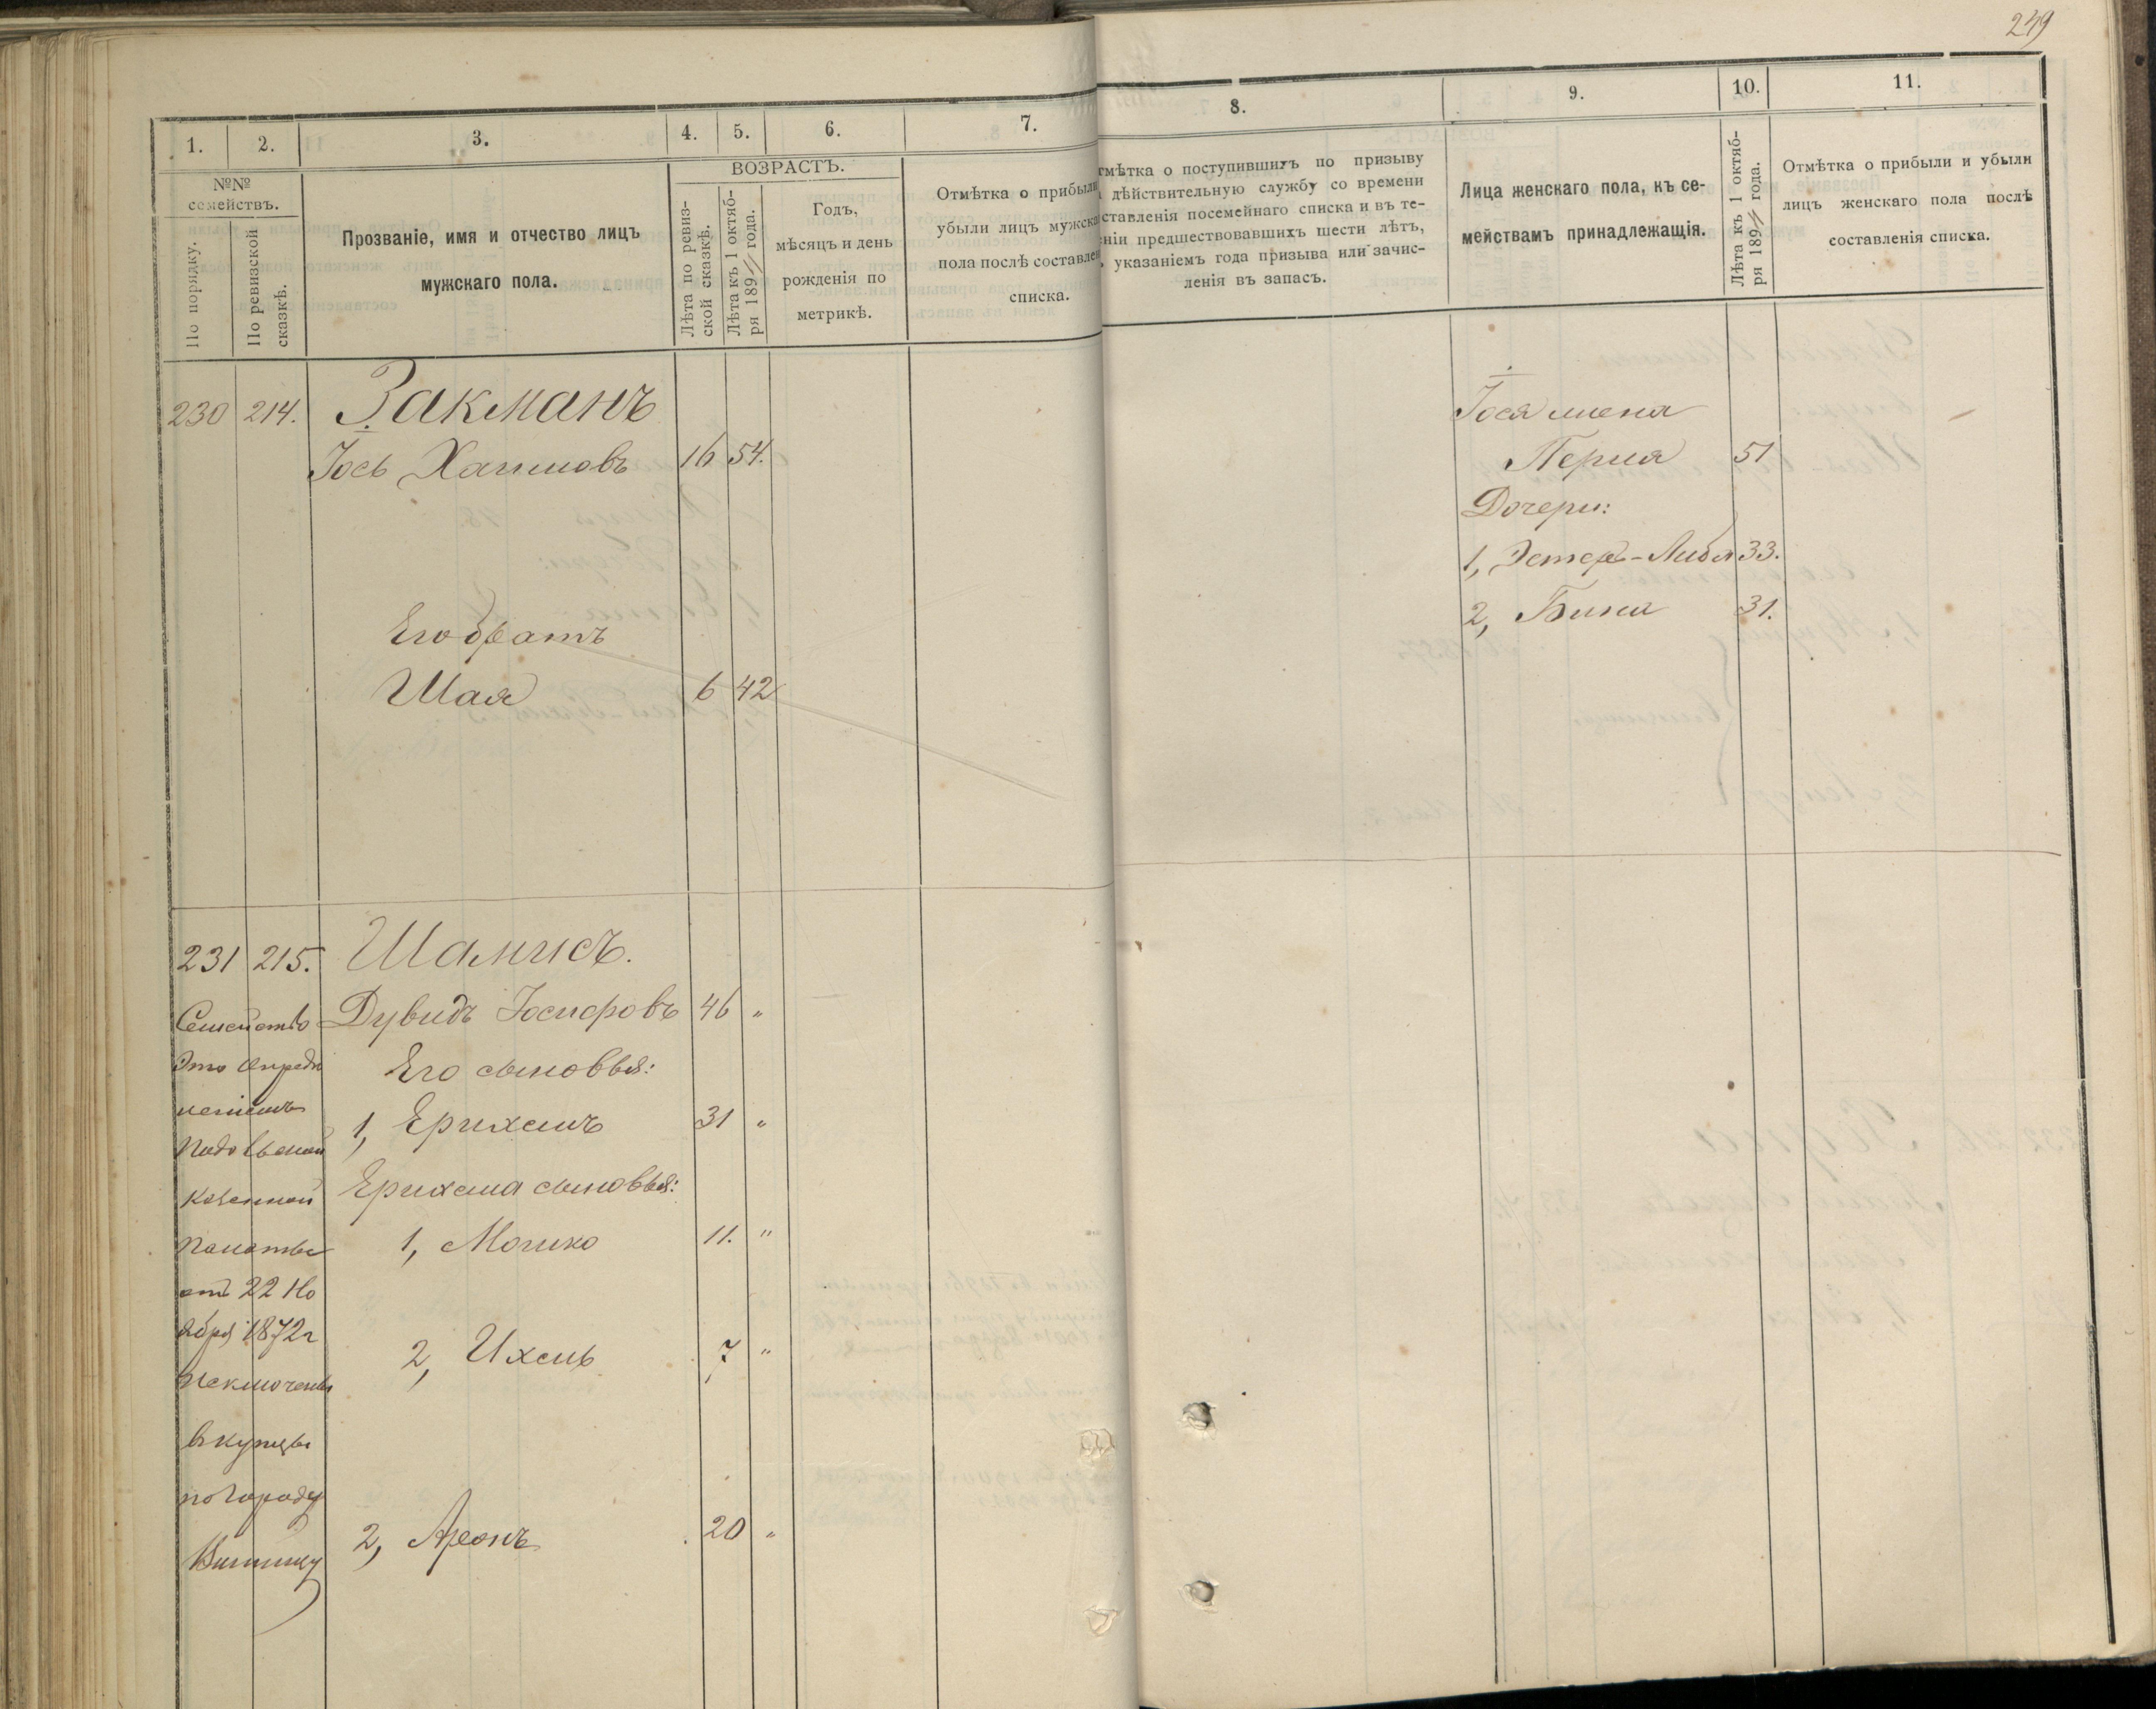 249
1. 2. 3. 4. 5. 6. 7. 8. 9. 10. 11.
№№ семействъ.
По порядку.
По ревизской сказкѣ.
Прозваніе, имя и отчество лицъ
мужскаго пола.
ВОЗРАСТЪ.
Лѣта по ревиз-
ской сказкѣ.
Лѣта къ 1 октяб-
ря 189 года.
Годъ,
мѣсяцъ и день
рожденія по
метрикѣ.
Отмѣтка о прибыли
убыли лицъ мужска
пола послѣ составлен
списка.
тмѣтка о поступившихъ по призыву
дѣйствительную службу со времени
ставленія посемейнаго списка и въ те-
ніи предшествовавшихъ шести лѣтъ,
указаніемъ года призыва или зачис-
ленія въ запасъ.
Лица женскаго пола, къ се-
мействамъ принадлежащія.
Лѣта къ 1 октяб-
ря 189 года.
Отмѣтка о прибыли и убыли
лицъ женскаго пола послѣ
составленія списка.
230 214. Закманъ
Іось Хаимовъ 16 54.
Его братъ
Шая 6 42
Іося жена
Перля 51
Дочери:
1, Эстеръ-Либа 33.
2, Бина 31.
231 215. Шамисъ.
Дувидъ Іосифовъ 46 "
Его сыновья:
1, Ерихемъ 31 "
Ерихема сыновья:
1, Мошко 11. "
2, Ихель 7 "
2, Аронъ 20 "
Семейство
это опредѣ
леніемъ
Подольской
казенной
палаты
отъ 22 Но
ября 1872 г
исключены
въ купцы
по городу
Винницу